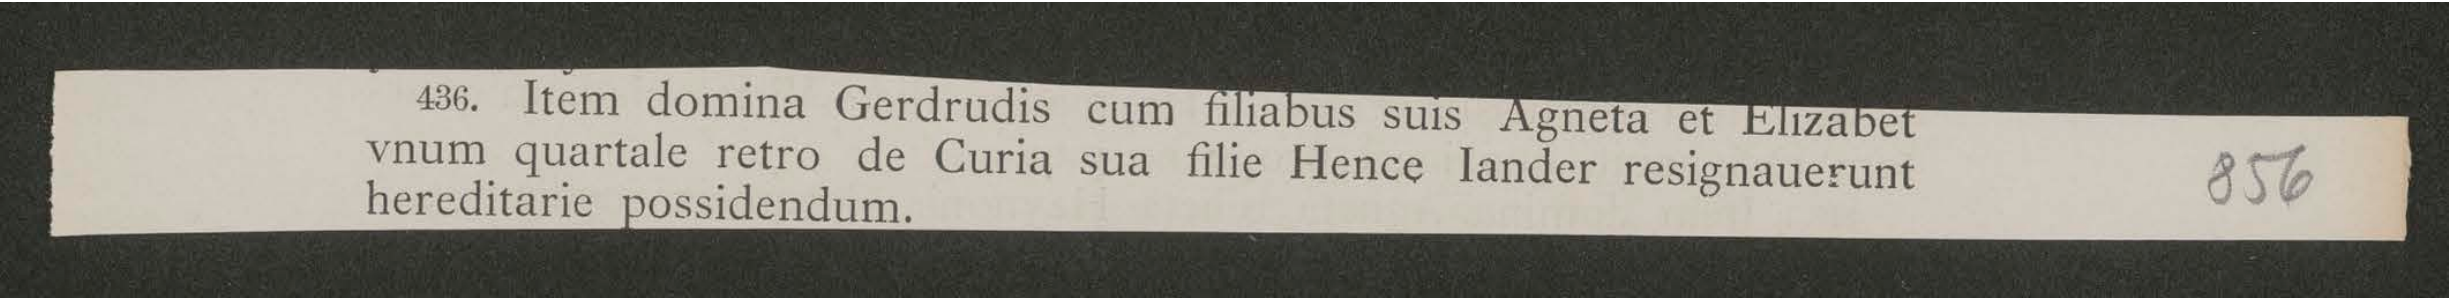 436. Item domina Gerdrudis cum filiabus suis Agneta et Elizabet
vnum quartale retro de Curia sua filie Hence Iander resignauerunt
hereditarie possidendum.
856